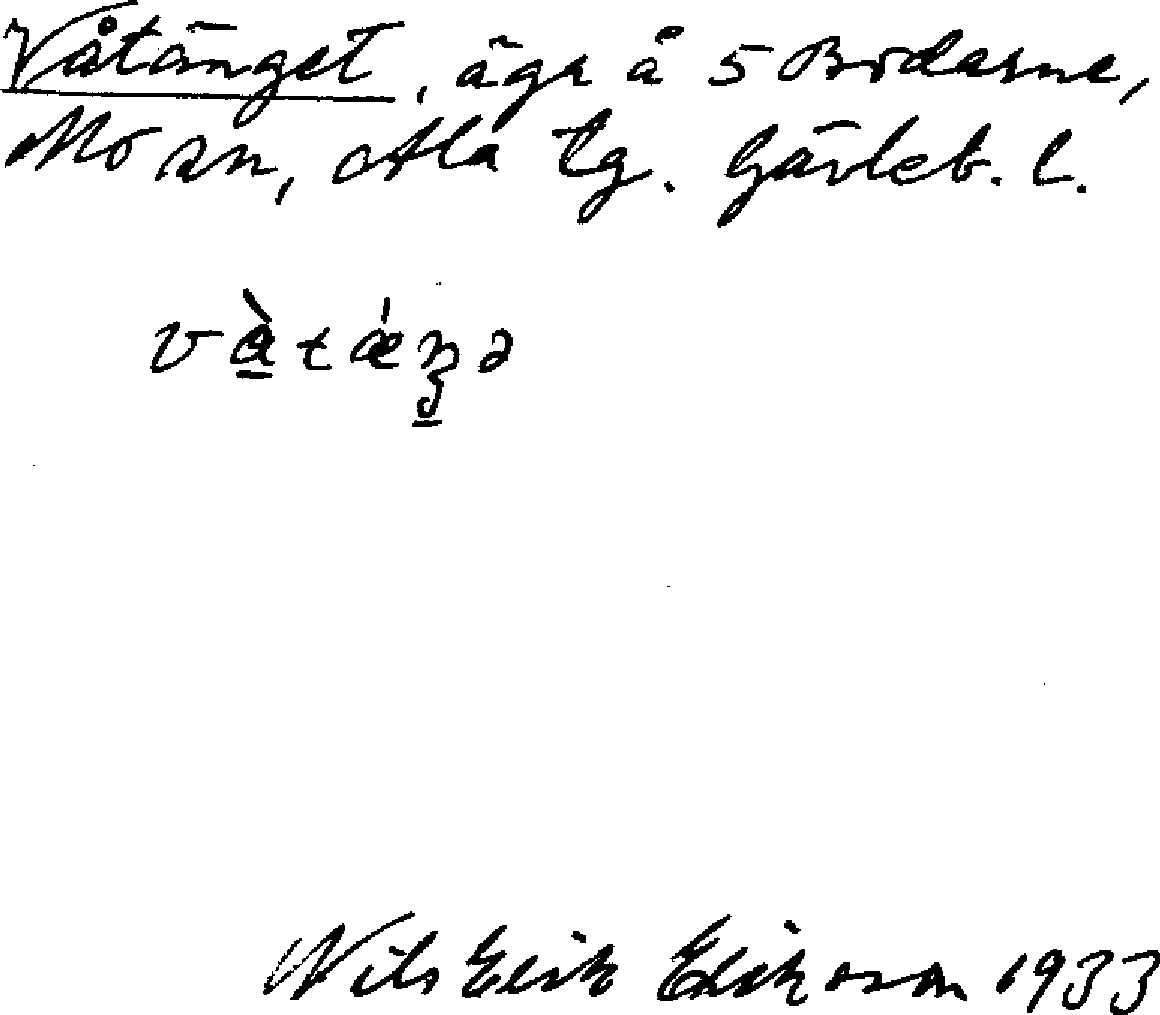 Våtänget, äga å 5 Bodarne,
Mo sn, Ala tg. Gävleb. l.
Nils Erik Erikson 1933